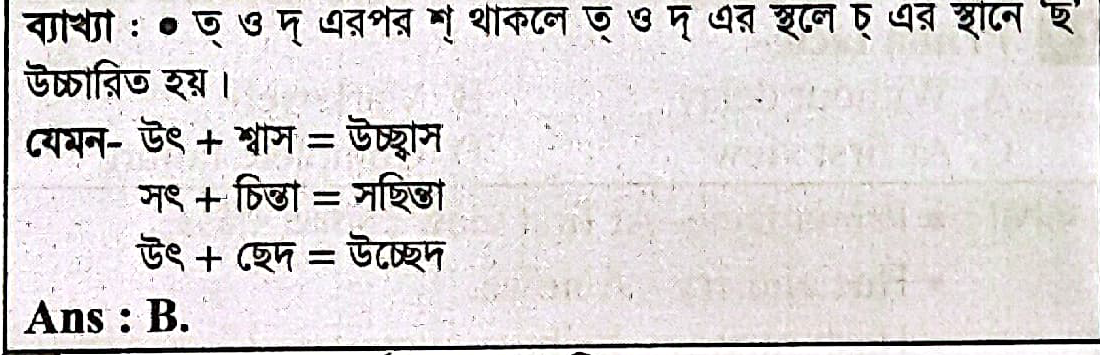 ব্যাখ্যা : ● ত্ ও দ্ এরপর শ্ থাকলে ত্ ও দ্ এর স্থলে চ্ এর স্থানে 'ছ'
উচ্চারিত হয়।
যেমন- উৎ + শ্বাস = উচ্ছ্বাস
সৎ + চিন্তা = সছিন্তা
উৎ + ছেদ = উচ্ছেদ
Ans : B.